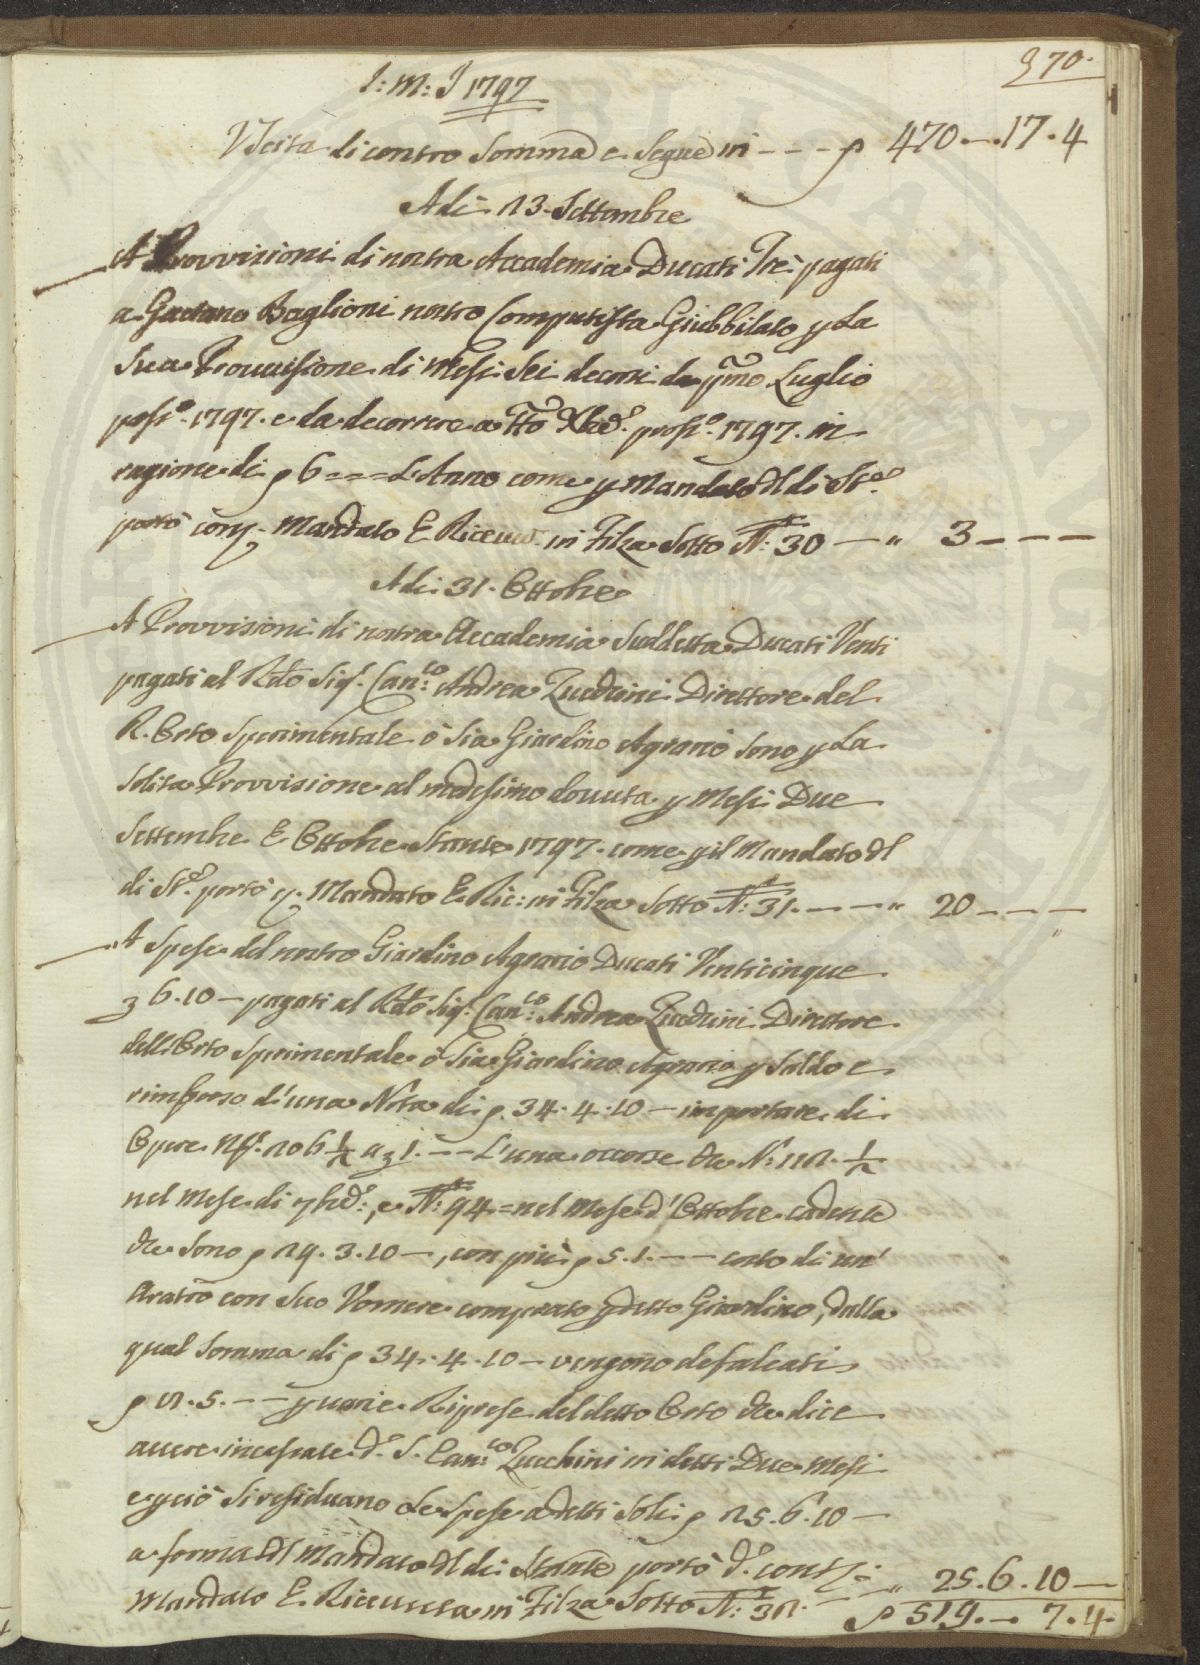 I: M: J 1797
370.
Uscita di contro Somma e Segue in - - - p 470.-.17.4
Adi 13. Settembre
A Provvisioni di nostra Accademia Ducati Tre pagati
a Gaetano Baglioni nostro Computista Giubbilato p La
Sua Provvisione di Mesi Sei decorsi da pmo Luglio
1797. e da decorrere a tto Xbre 1797. in
ragione di p 6 === L'Anno come p Mandato
portò Mandato E Ricevuta in Filza Sotto N: 30 — " 3 - - -
Adi 31. Ottobre
A Provvisioni di nostra Accademia Suddetta Ducati Venti
pagati al Rdo Sigr. Canco Andrea Zucchini Direttore del
R. Orto Sperimentale o Sia Giardino Agrario Sono p La
Solita Provvisione al medesimo dovuta p Mesi Due
Settembre E Ottobre Stante 1797. come p il Mandato dl
di Ste portò p Mandato E Ric: in Filza Sotto N: 31. - - - " 20 - - -
A Spese del nostro Giardino Agrario Ducati Venticinque
3 6.10 - pagati al Rdo Sigr. Canco Andrea Zucchini Direttore
dell'Orto Sperimentale o Sia Giardino Agrario p Saldo e
rimborso d'una Nota di p. 34. 4. 10 - importare di
Opere No. 206 1/2 a 3 1. -- L'una occorse che N: 112. 1/2
nel Mese di 7bre:, e N: 94 = nel Mese d'Ottobre cadente
che Sono p 29. 3. 10 -, con più p 5. 1. -- costo di un'
Aratro con Suo Vomere comprato p detto Giardino, dalla
qual Somma di p 34. 4. 10 - vengono defalcati
p 8. 5. -- p varie Riprese del detto Orto che dice
avere incassate do S. Canco Zucchini in detti Due Mesi
e p ciò Si residuano Le Spese a detti Soli p 25. 6. 10 -
a forma del Mandato dl di Stante portò do " 25. 6. 10 —
Mandato E Ricevuta in Filza Sotto N: 32. - - p 519. - 7. 4.